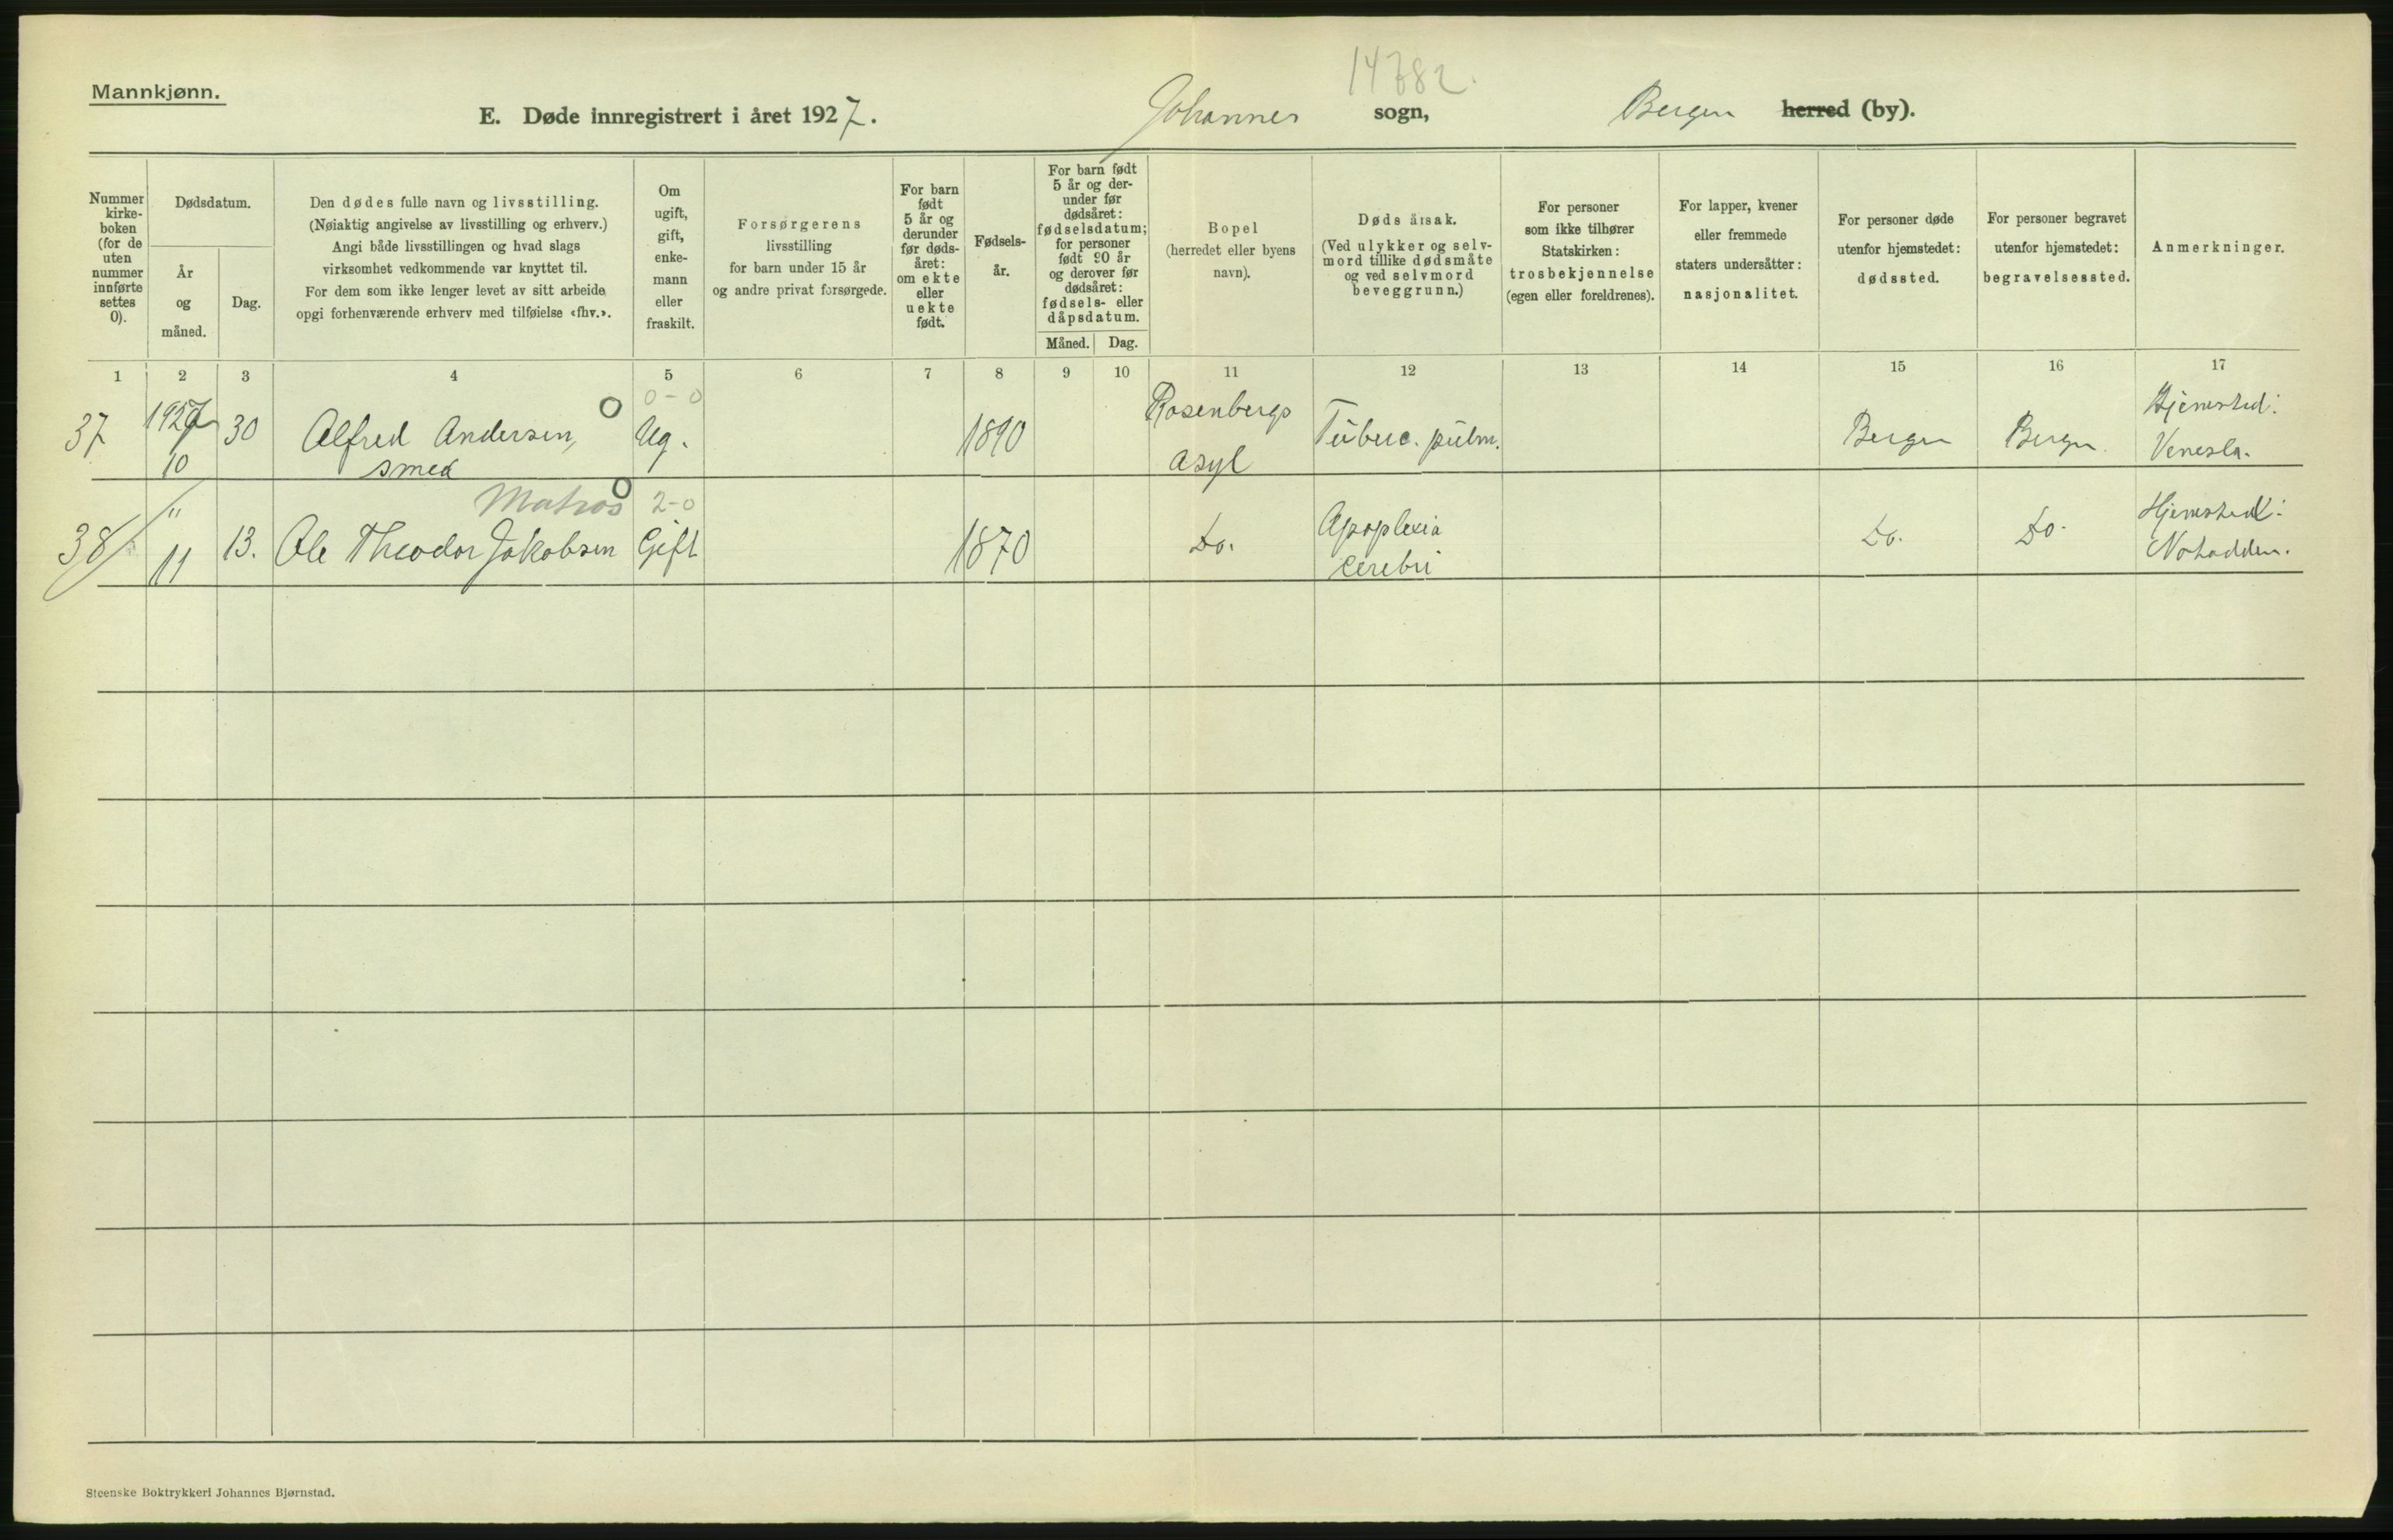 14782.
Mannkjønn.
E. Døde innregistrert i året 1927. Johannes sogn, Bergen herred (by).
Nummer
kirke-
boken
(for de
uten
nummer
innførte
settes
0).
Dødsdatum.
År
og
måned.
Dag.
Den dødes fulle navn og livsstilling.
(Nøiaktig angivelse av livsstilling og erhverv.)
Angi både livsstillingen og hvad slags
virksomhet vedkommende var knyttet til.
For dem som ikke lenger levet av sitt arbeide
opgi forhenværende erhverv med tilføielse «fhv.».
Om
ugift,
gift,
enke-
mann
eller
fraskilt.
Forsørgerens
livsstilling
for barn under 15 år
og andre privat forsørgede.
For barn
født
5 år og
derunder
før døds-
året:
om ekte
eller
uekte
født.
Fødsels-
år.
For barn født
5 år og der-
under før
dødsåret:
fødselsdatum;
for personer
født 90 år
og derover før
dødsåret:
fødsels- eller
dåpsdatum.
Måned. Dag.
Bopel
(herredet eller byens
navn).
Døds årsak.
(Ved ulykker og selv-
mord tillike dødsmåte
og ved selvmord
beveggrunn.)
For personer
som ikke tilhører
Statskirken:
trosbekjennelse
(egen eller foreldrenes).
For lapper, kvener
eller fremmede
staters undersåtter:
nasjonalitet.
For personer døde
utenfor hjemstedet:
dødssted.
For personer begravet
utenfor hjemstedet:
begravelsessted.
Anmerkninger.
1 2 3 4 5 6 7 8 9 10 11 12 13 14 15 16 17
37
1927
10
30
Alfred Andersen,
smed
0
0-0
Ug.
1890
Rosenbergs
asyl
Tuberc. pulm.
Bergen
Bergen
Hjemsted:
Venesla.
38
"
11
13.
Matros
0
Ole Theodor Jakobsen
2-0
Gift
1870
Do.
Apoplexia
cerebri
Do.
Do.
Hjemsted:
Notodden.
Steenske Boktrykkeri Johannes Bjørnstad.